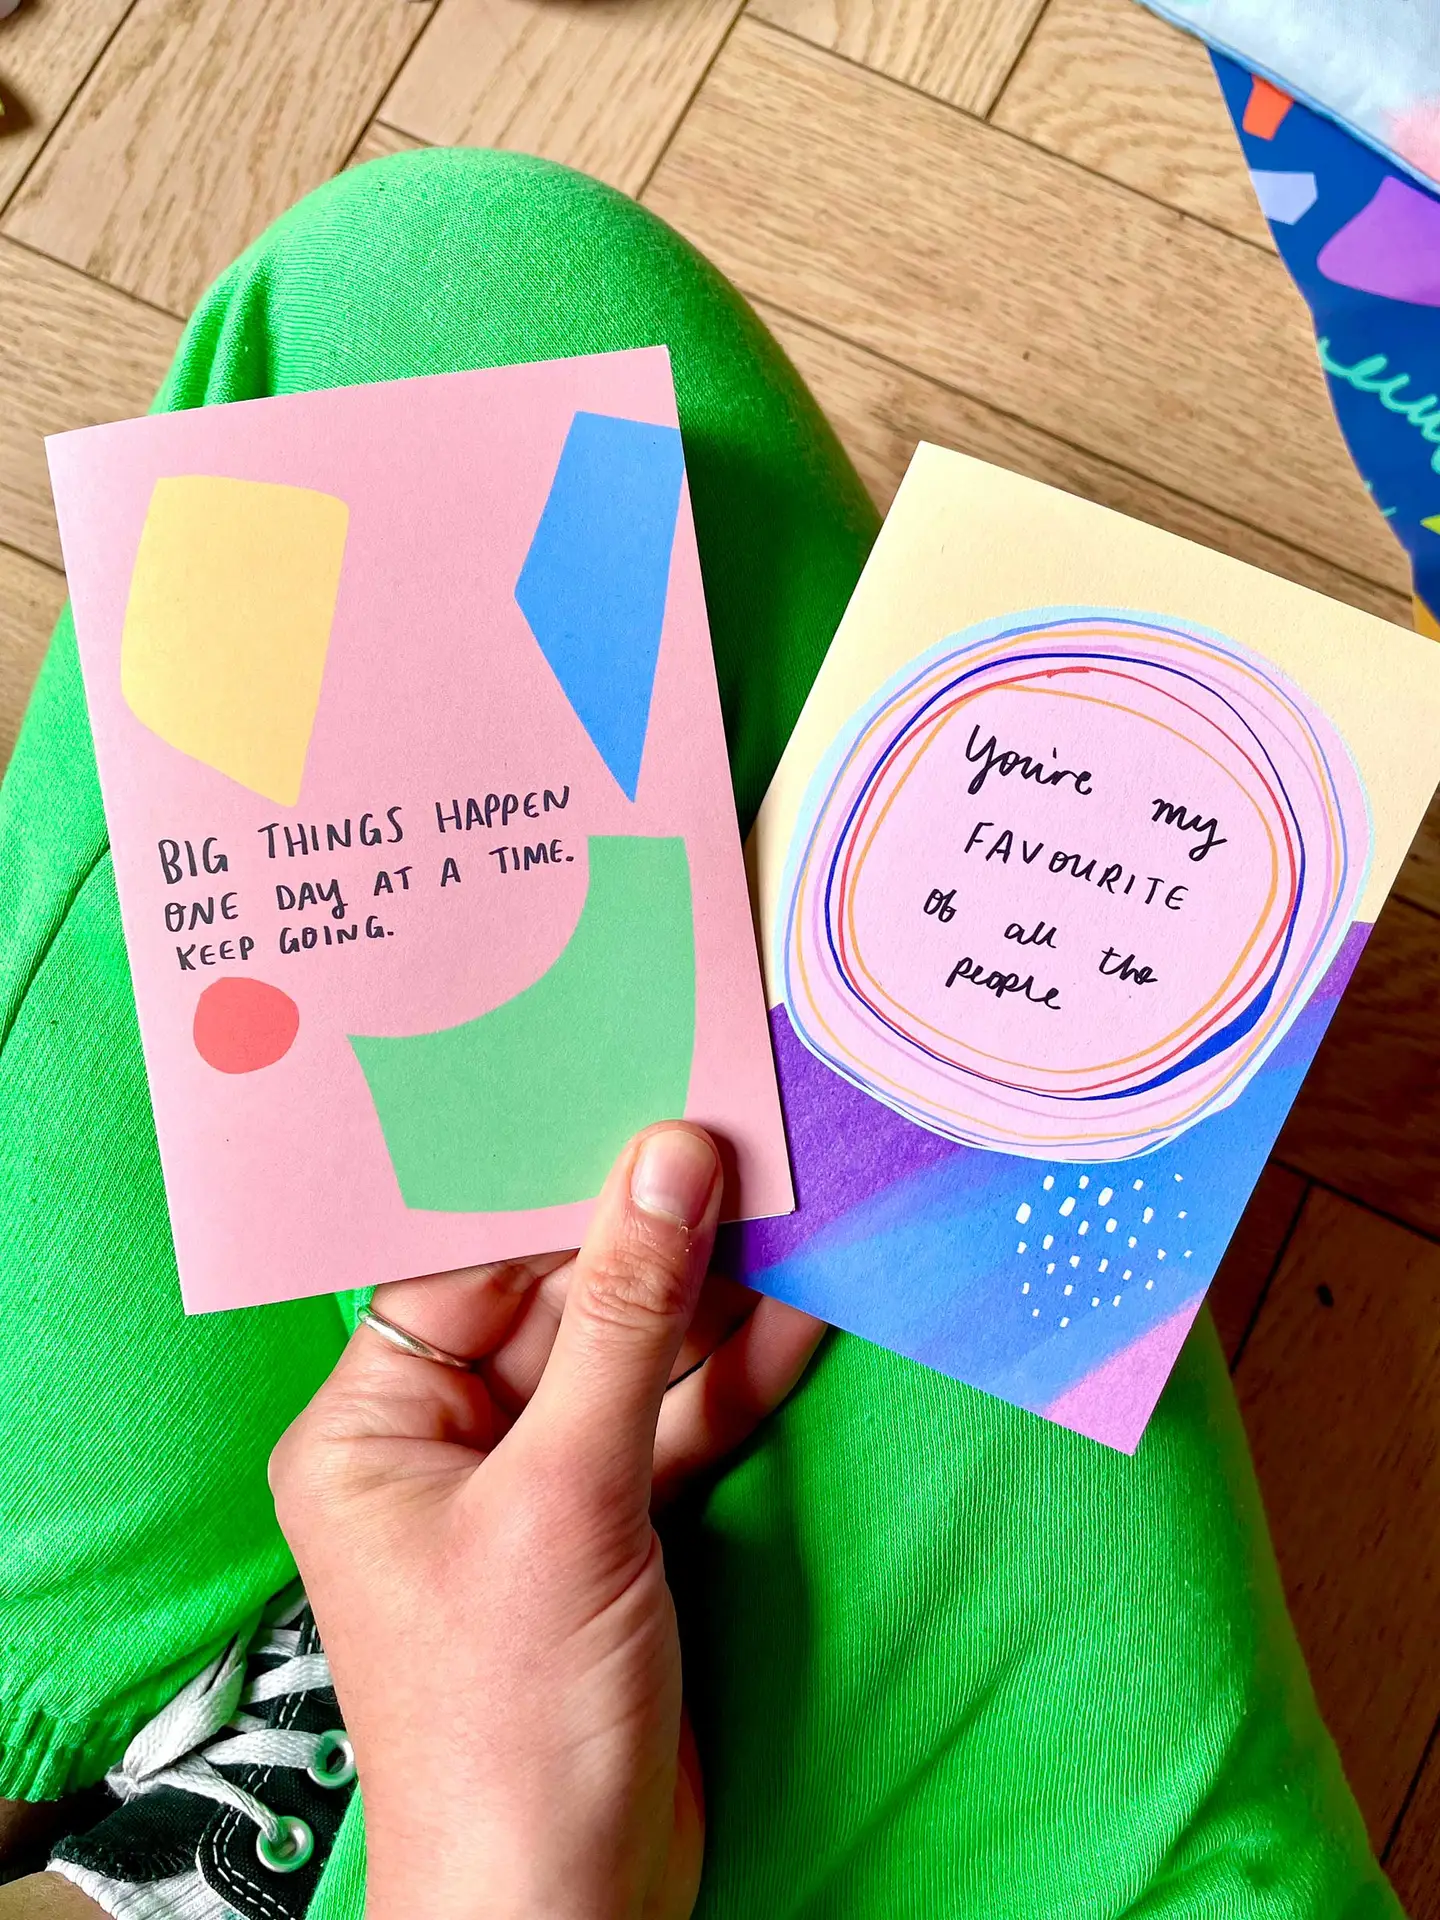 BIG THINGS HAPPEN
ONE DAY AT A TIME.
KEEP GOING.
You're my
FAVOURITE
of all the
people